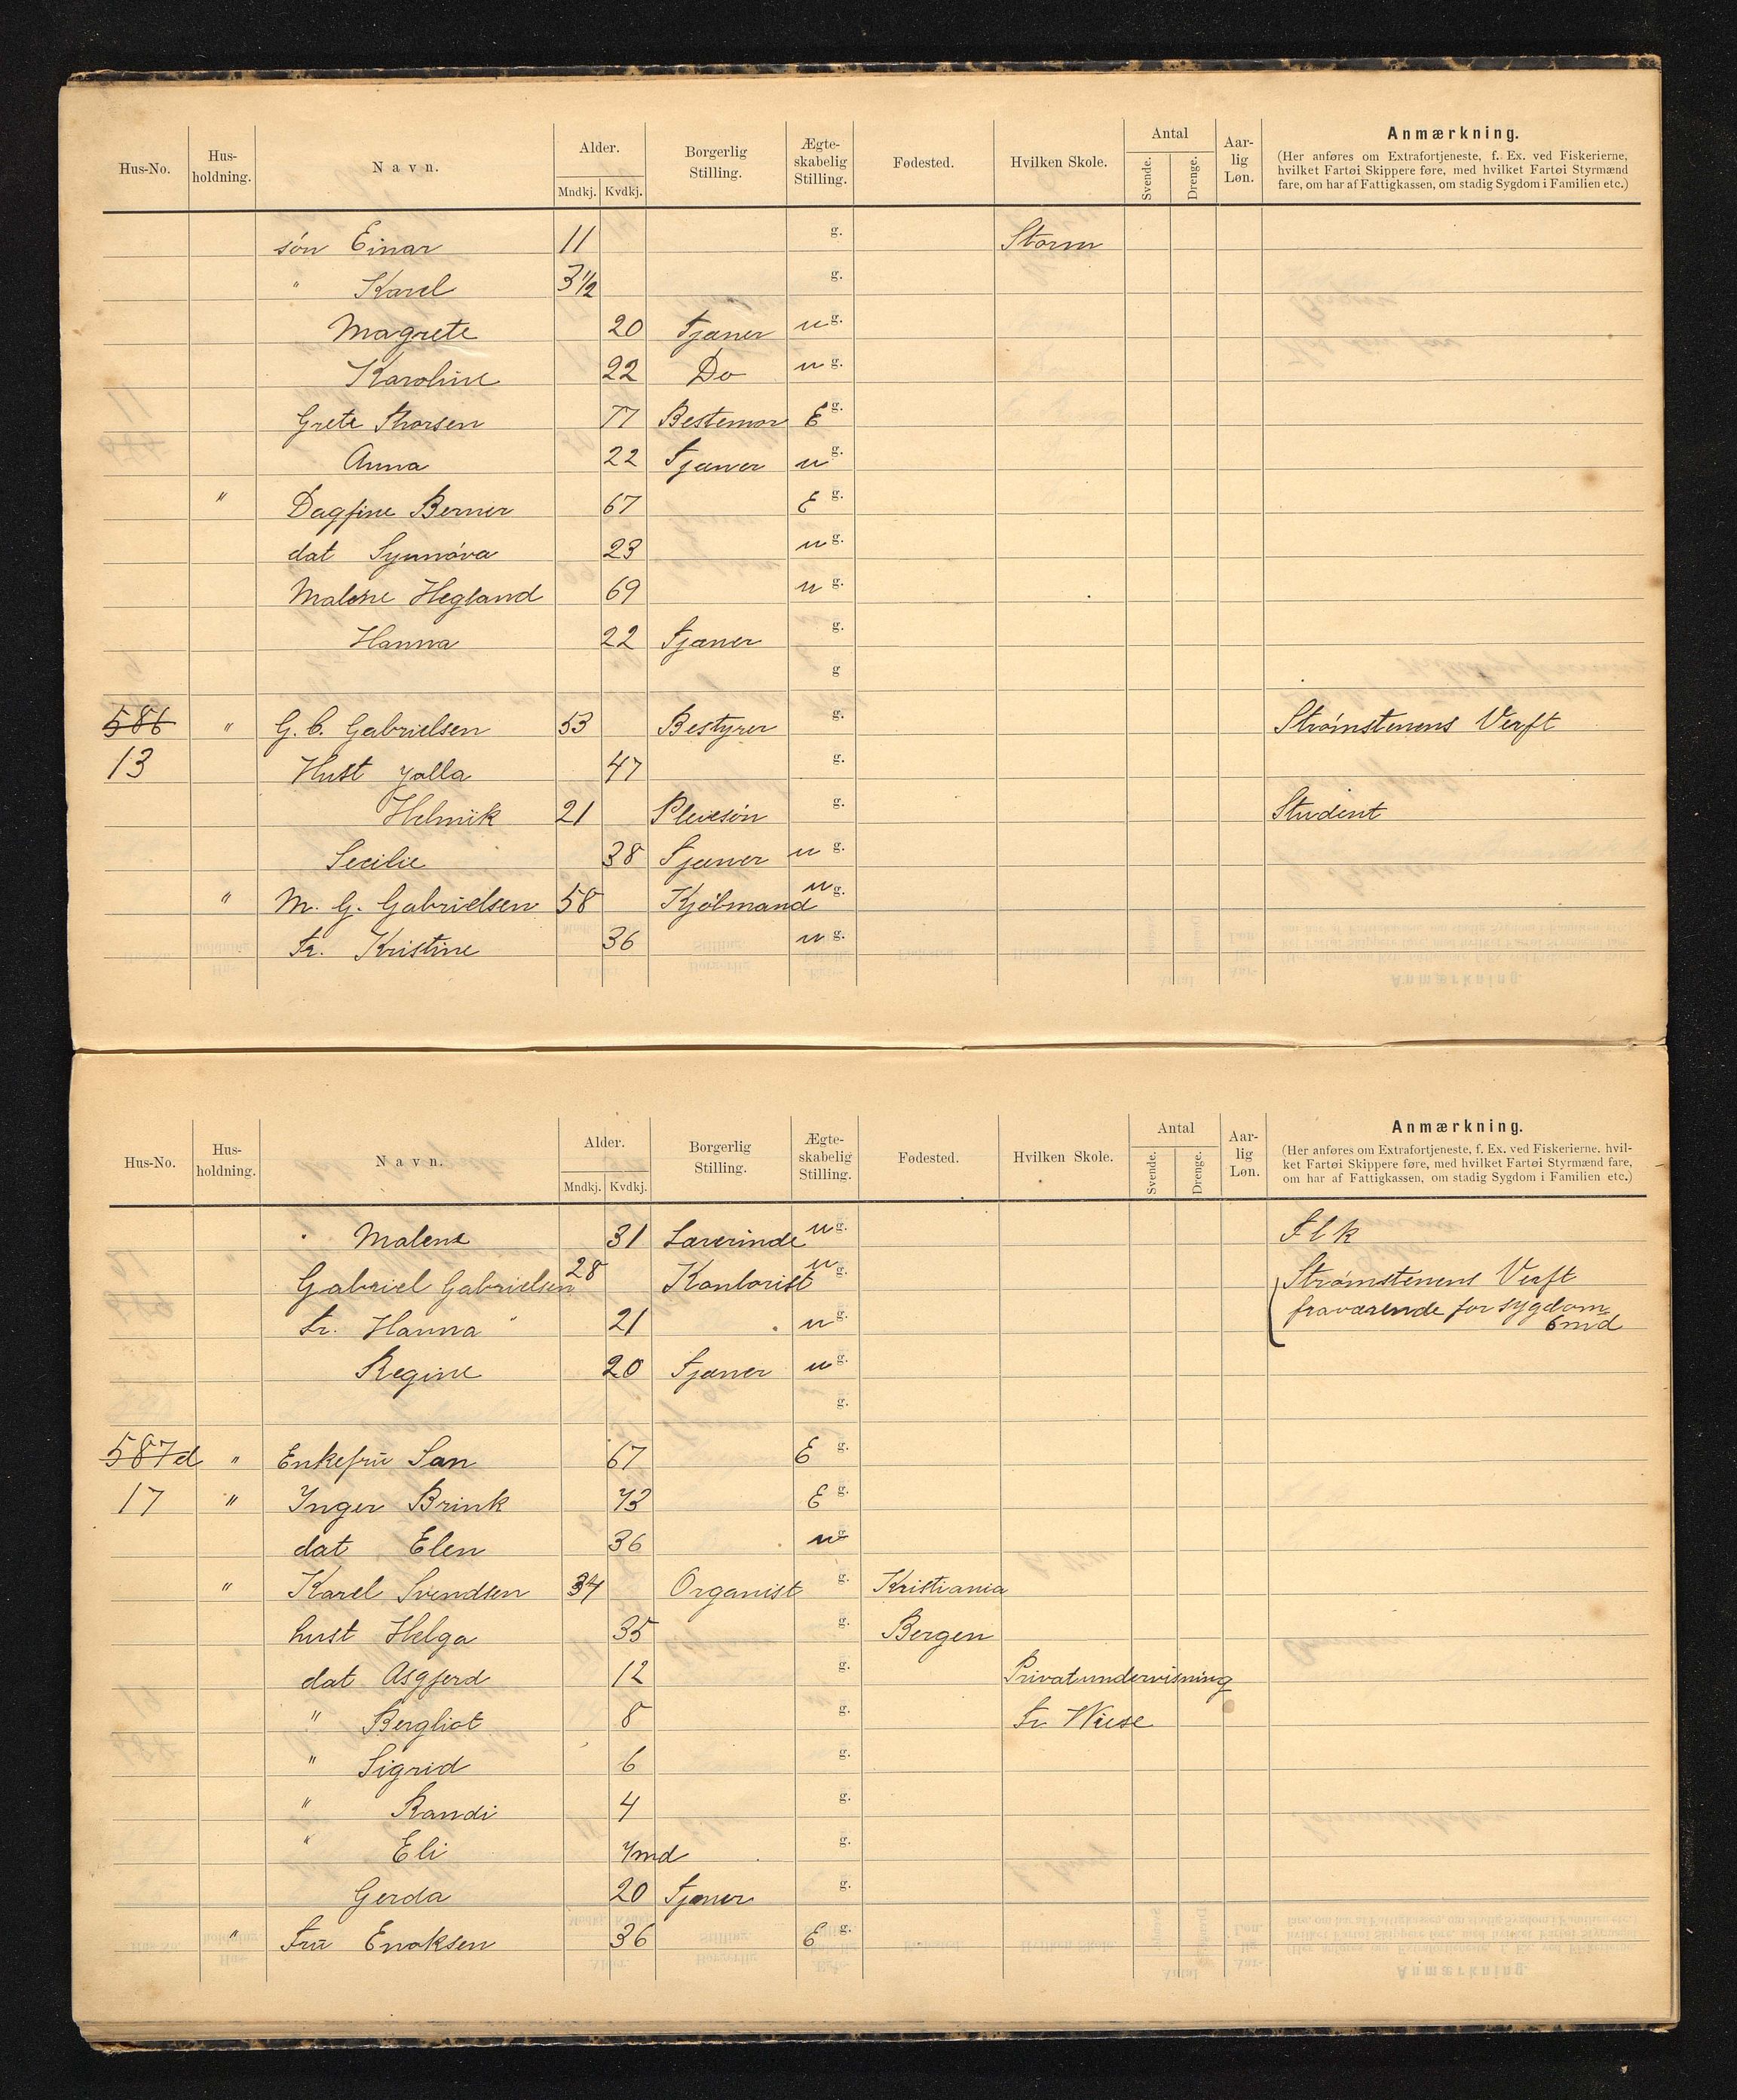 Hus-No. Hus-holdning. Navn. Alder. Mndkj. Kvdkj. Borgerlig Stilling. Ægte-skabelig Stilling. Fødested. Hvilken Skole. Antal Svende. Drenge. Aar-lig Løn. Anmærkning.
(Her anføres om Extrafortjeneste, f. Ex. ved Fiskerierne,
hvilket Fartøi Skippere føre, med hvilket Fartøi Styrmænd
fare, om har af Fattigkassen, om stadig Sygdom i Familien etc.)
søn Einar 11 g. Storm
" Karel 3 1/2 g.
Magrete 20 Tjener u g.
Karoline 22 Do u g.
Grete Thorsen 77 Bestemor E g.
Anna 22 Tjener u g.
" Dagfine Berner 67 E g.
dat Synnøva 23 u g.
Malene Hegland 69 u g.
Hanna 22 Tjener g.
g
586 " G. C. Gabrielsen 53 Bestyrer g. Strømstenens Verft
13 Hust Jalla 47 g.
Helmik 21 Pleiesøn g. Student
Secilie 38 Tjener u g.
" M. G. Gabrielsen 58 Kjøbmand u g.
Fr. Kristine 36 u g.
Hus-No. Hus-holdning. Navn. Alder. Mndkj. Kvdkj. Borgerlig Stilling. Ægte-skabelig Stilling. Fødested. Hvilken Skole. Antal Svende. Drenge. Aar-lig Løn. Anmærkning.
(Her anføres om Extrafortjeneste, f. Ex. ved Fiskerierne, hvil-
ket Fartøi Skippere føre, med hvilket Fartøi Styrmænd fare,
om har af Fattigkassen, om stadig Sygdom i Familien etc.)
" Malene 31 Lærerinde u g. F l k
Gabriel Gabrielsen 28 Kontorist u g. Strømstenens Verft
Fr. Hanna " 21 u g. fraværende for sygdom 6 md
Regine 20 Tjener u g.
g.
587d " Enkefrü San 67 E g.
17 " Inger Brink 73 E g.
dat Elen 36 u g
" Karel Svendsen 34 Organist g. Kristiania
hust Helga 35 g. Bergen
dat Asgjerd 12 g. Privatundervisning
" Bergliot 8 g. Fr Wiese
" Sigrid 6 g.
" Randi 4 g.
" Eli 7md g.
Gerda 20 Tjener g.
" Frü Enoksen 36 E g.